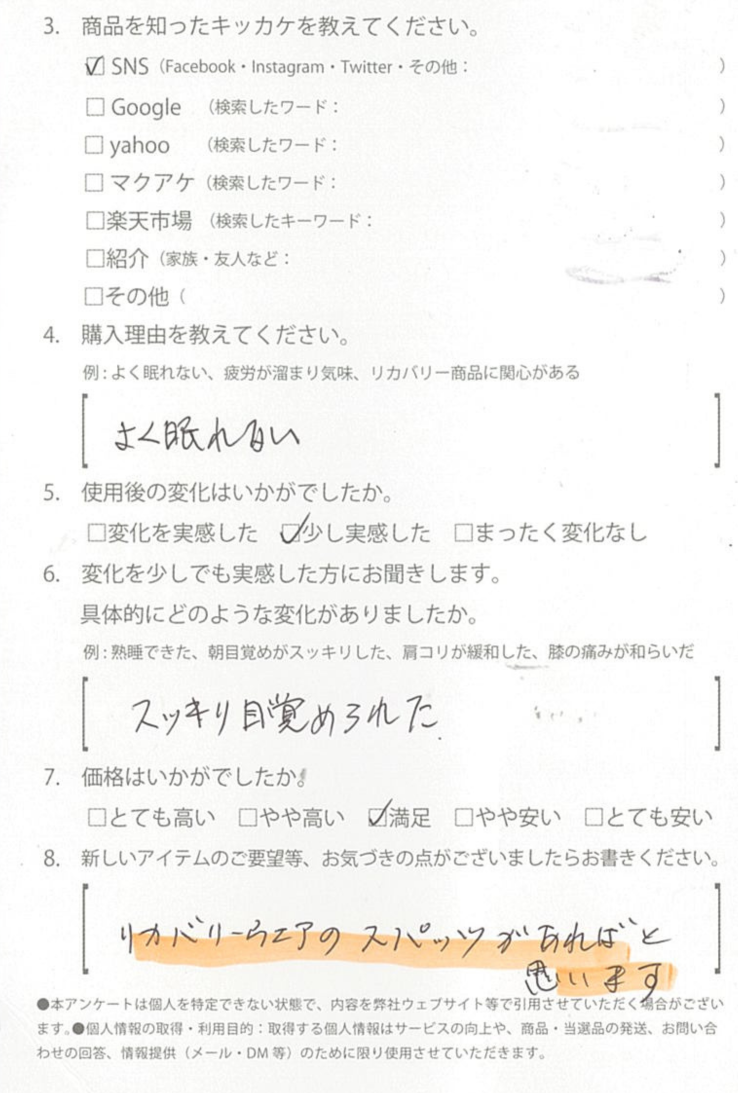 3. 商品を知ったキッカケを教えてください。
☑ SNS（Facebook・Instagram・Twitter・その他：　）
□ Google （検索したワード：　）
□ yahoo （検索したワード：　）
□ マクアケ（検索したワード：　）
□楽天市場 （検索したキーワード：　）
□紹介（家族・友人など：　）
□その他（　）
4. 購入理由を教えてください。
例：よく眠れない、疲労が溜まり気味、リカバリー商品に関心がある
よく眠れない
5. 使用後の変化はいかがでしたか。
□変化を実感した ☑少し実感した □まったく変化なし
6. 変化を少しでも実感した方にお聞きします。
具体的にどのような変化がありましたか。
例：熟睡できた、朝目覚めがスッキリした、肩コリが緩和した、膝の痛みが和らいだ
スッキリ目覚めろれた
7. 価格はいかがでしたか。
□とても高い □やや高い ☑満足 □やや安い □とても安い
8. 新しいアイテムのご要望等、お気づきの点がございましたらお書きください。
リカバリーウエアのスパッツがあればと
思います
●本アンケートは個人を特定できない状態で、内容を弊社ウェブサイト等で引用させていただく場合がござい
ます。●個人情報の取得・利用目的：取得する個人情報はサービスの向上や、商品・当選品の発送、お問い合
わせの回答、情報提供（メール・DM 等）のために限り使用させていただきます。